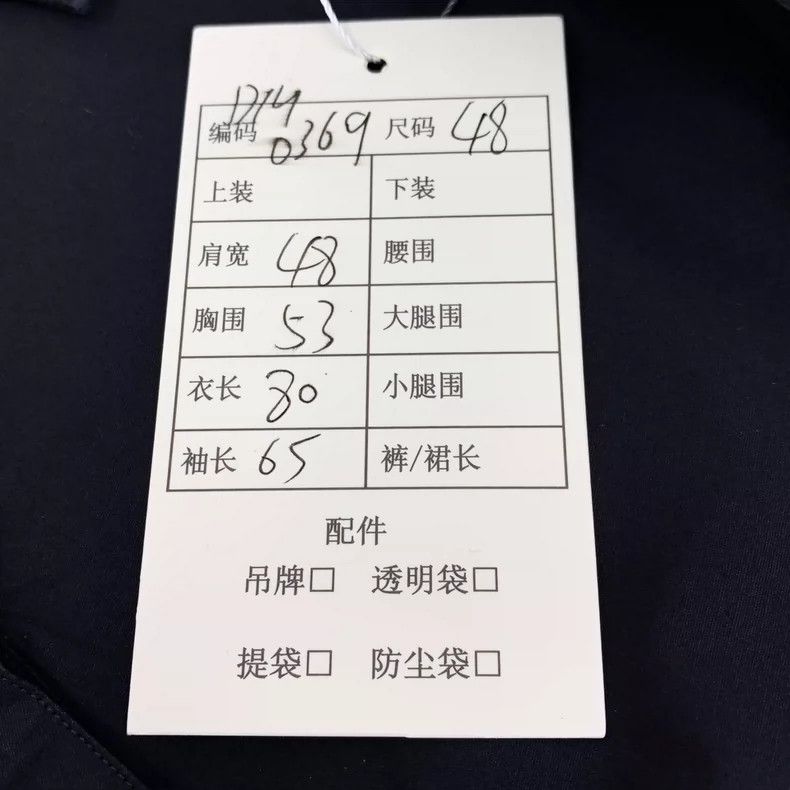 编码 D14 0369 尺码 48
上装 下装
肩宽 48 腰围
胸围 53 大腿围
衣长 80 小腿围
袖长 65 裤/裙长
配件
吊牌□ 透明袋□
提袋□ 防尘袋□